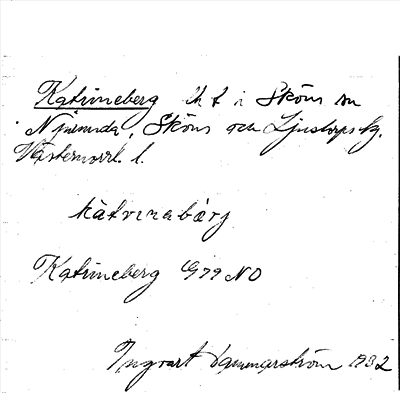 Katrineberg lht i Sköns sn
Njurunda, Sköns och Ljustorps tg.
Västernorrl. l.
kàtrinabærj
Katrineberg G79 NO
Ingvart 1932